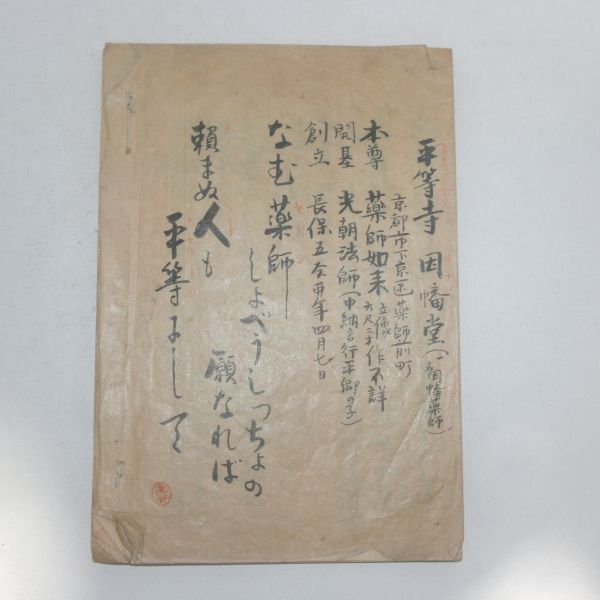 平等寺 因幡堂(因幡薬師)
京都市下京区薬師前町
本尊 薬師如来 立像 六尺二寸 作不詳
開基 光朝法師(中納言行平郷の子)
創立 長保五癸卯年四月七日
なむ薬師
しよべうしつちよの
願なれば
頼まぬ人も
平等にして